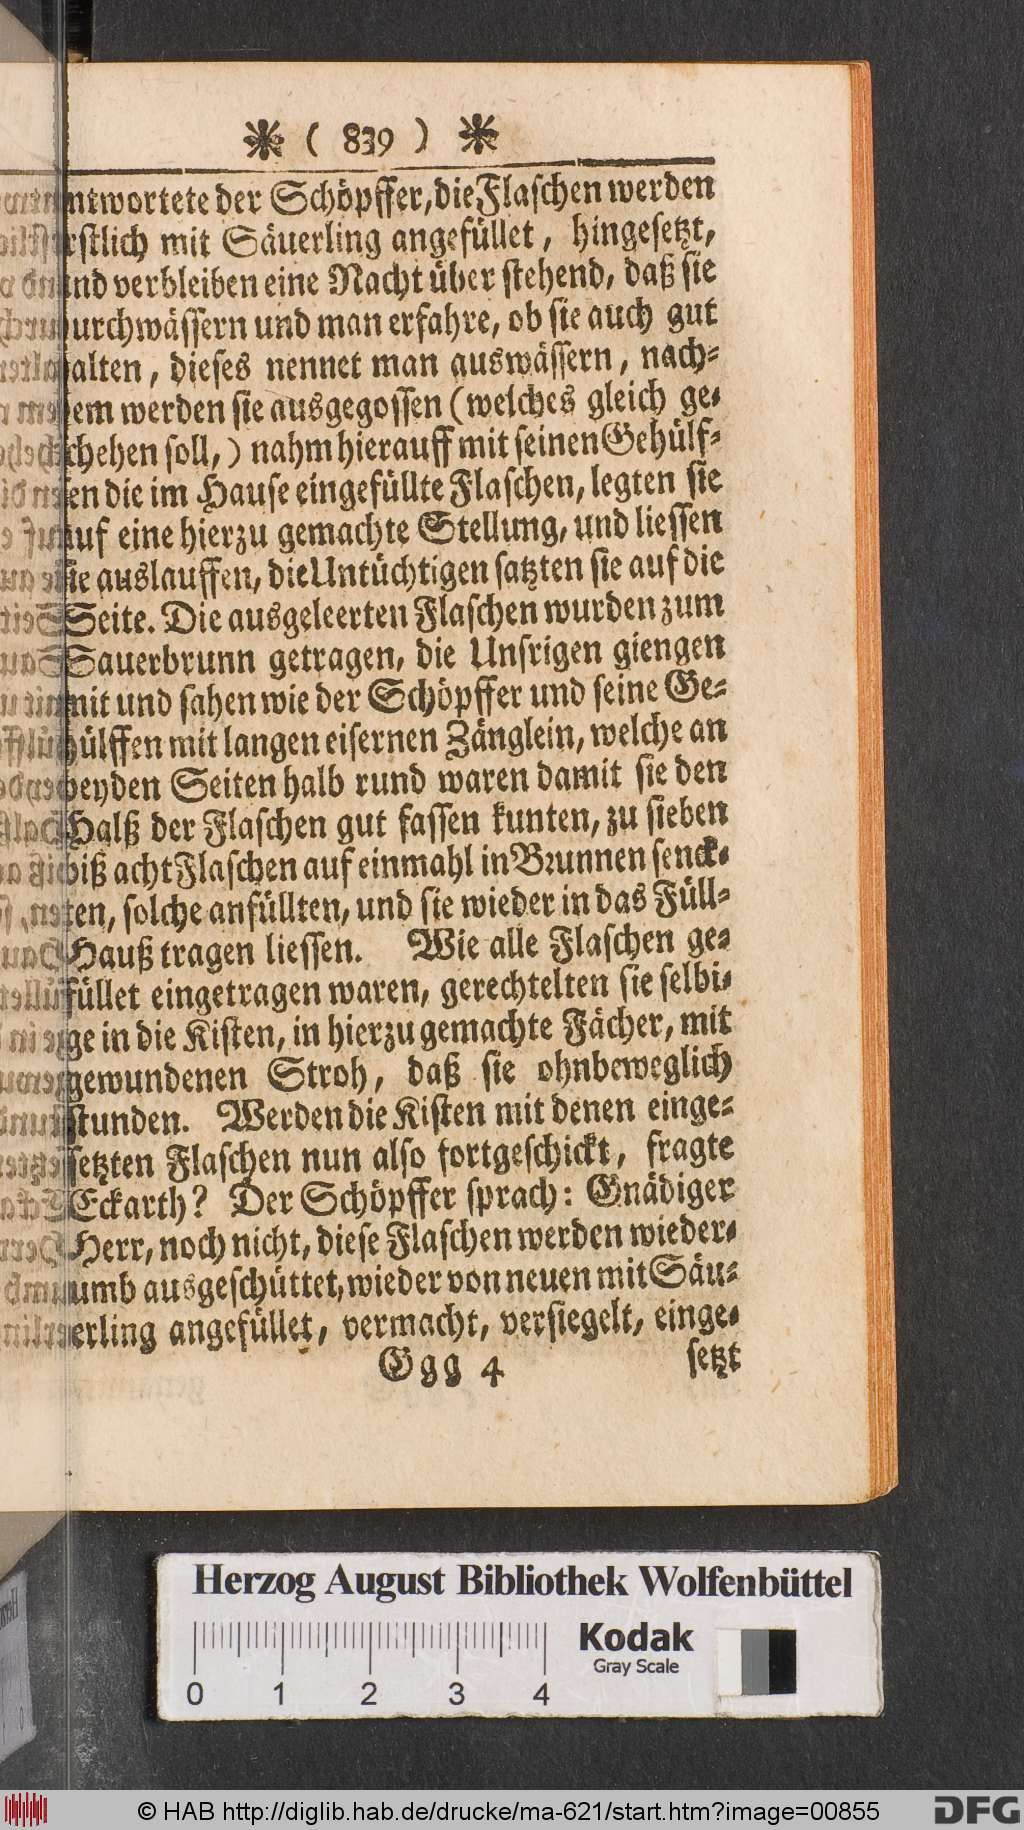 * ( 839 ) *
antwortete der Schöpffer, die Flaschen werden
erstlich mit Säuerling angefüllet, hingesetzt,
und verbleiben eine Nacht über stehend, daß sie
durchwässern und man erfahre, ob sie auch gut
halten, dieses nennet man auswässern, nach-
dem werden sie ausgegossen (welches gleich ge-
schehen soll,) nahm hierauff mit seinen Gehülf-
fen die im Hause eingefüllte Flaschen, legten sie
auf eine hierzu gemachte Stellung, und liessen
sie auslauffen, die Untüchtigen satzten sie auf die
Seite. Die ausgeleerten Flaschen wurden zum
Sauerbrunn getragen, die Unsrigen giengen
mit und sahen wie der Schöpffer und seine Ge-
hülffen mit langen eisernen Zänglein, welche an
beyden Seiten halb rund waren damit sie den
Halß der Flaschen gut fassen kunten, zu sieben
biß acht Flaschen auf einmahl in Brunnen senck-
ten, solche anfüllten, und sie wieder in das Füll-
Hauß tragen liessen. Wie alle Flaschen ge-
füllet eingetragen waren, gerechtelten sie selbi-
ge in die Kisten, in hierzu gemachte Fächer, mit
gewundenen Stroh, daß sie ohnbeweglich
stunden. Werden die Kisten mit denen einge-
setzten Flaschen nun also fortgeschickt, fragte
Eckarth? Der Schöpffer sprach: Gnädiger
Herr, noch nicht, diese Flaschen werden wieder-
umb ausgeschüttet, wieder von neuen mit Säu-
erling angefüllet, vermacht, versiegelt, einge-
Ggg 4 setzt
Herzog August Bibliothek Wolfenbüttel
Kodak
Gray Scale
0 1 2 3 4
© HAB http://diglib.hab.de/drucke/ma-621/start.htm?image=00855
DFG